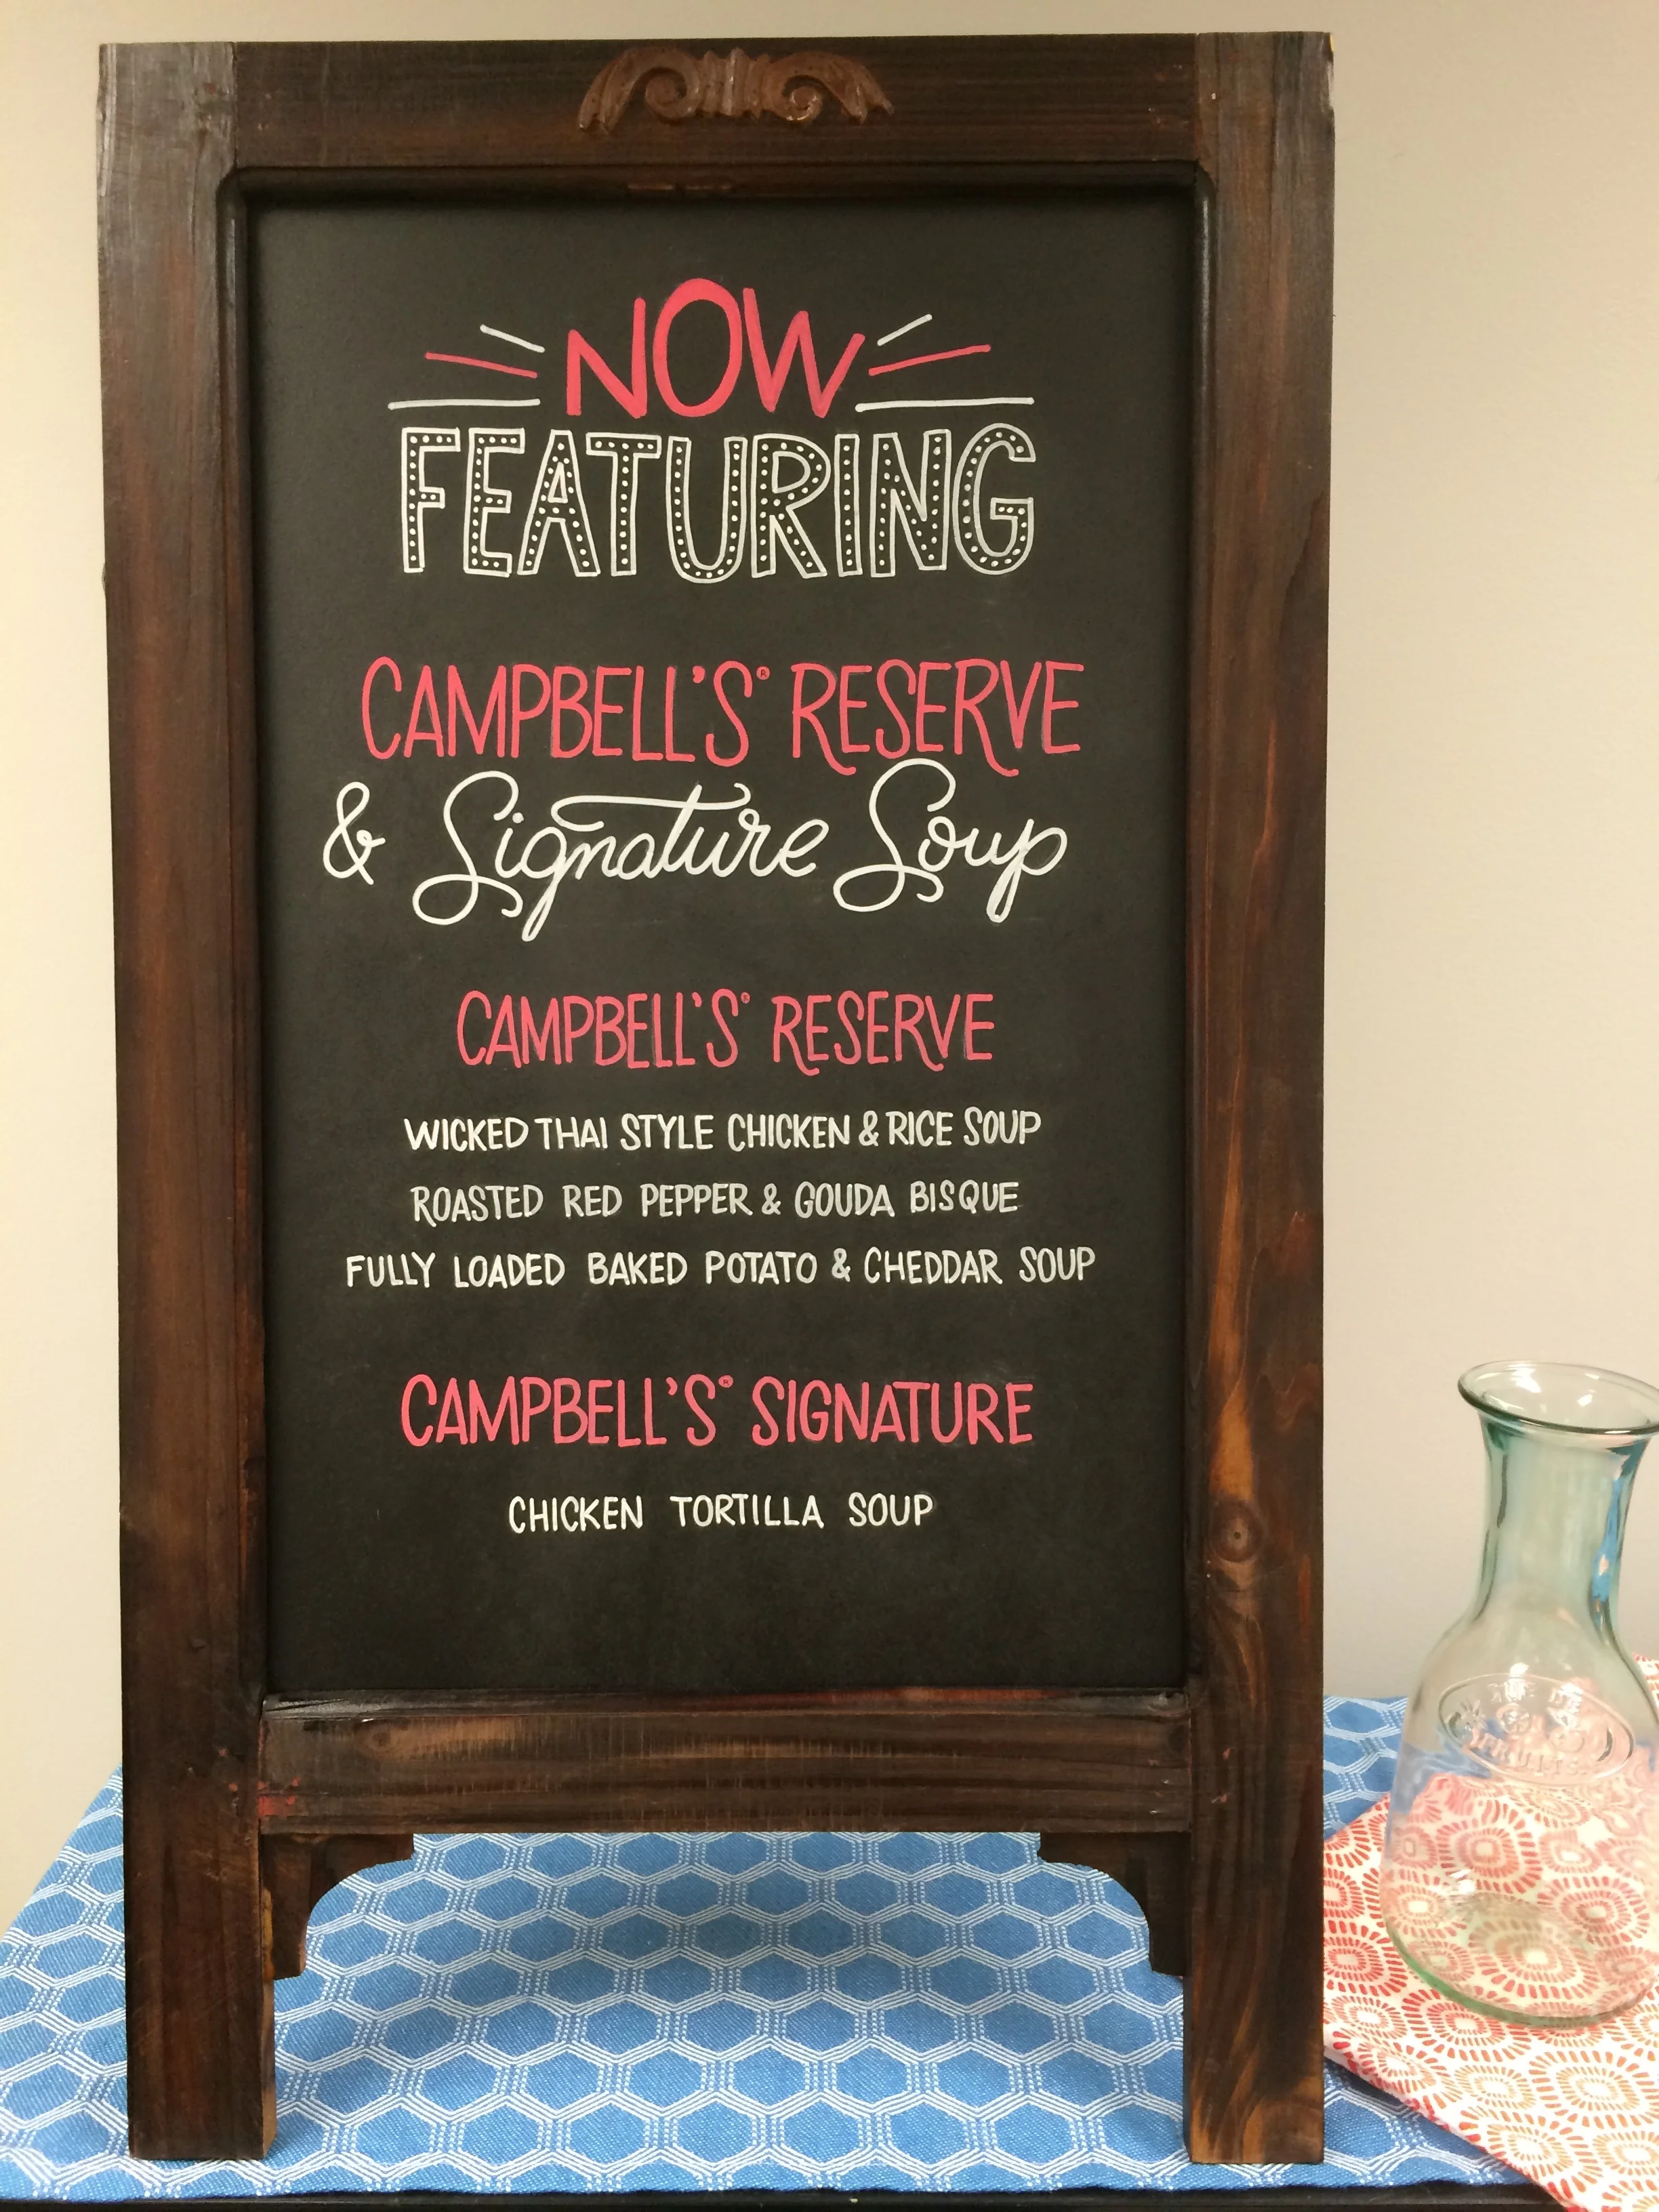 NOW
FEATURING
CAMPBELL'S® RESERVE
& Signature Soup
CAMPBELL'S® RESERVE
WICKED THAI STYLE CHICKEN & RICE SOUP
ROASTED RED PEPPER & GOUDA BISQUE
FULLY LOADED BAKED POTATO & CHEDDAR SOUP
CAMPBELL'S® SIGNATURE
CHICKEN TORTILLA SOUP